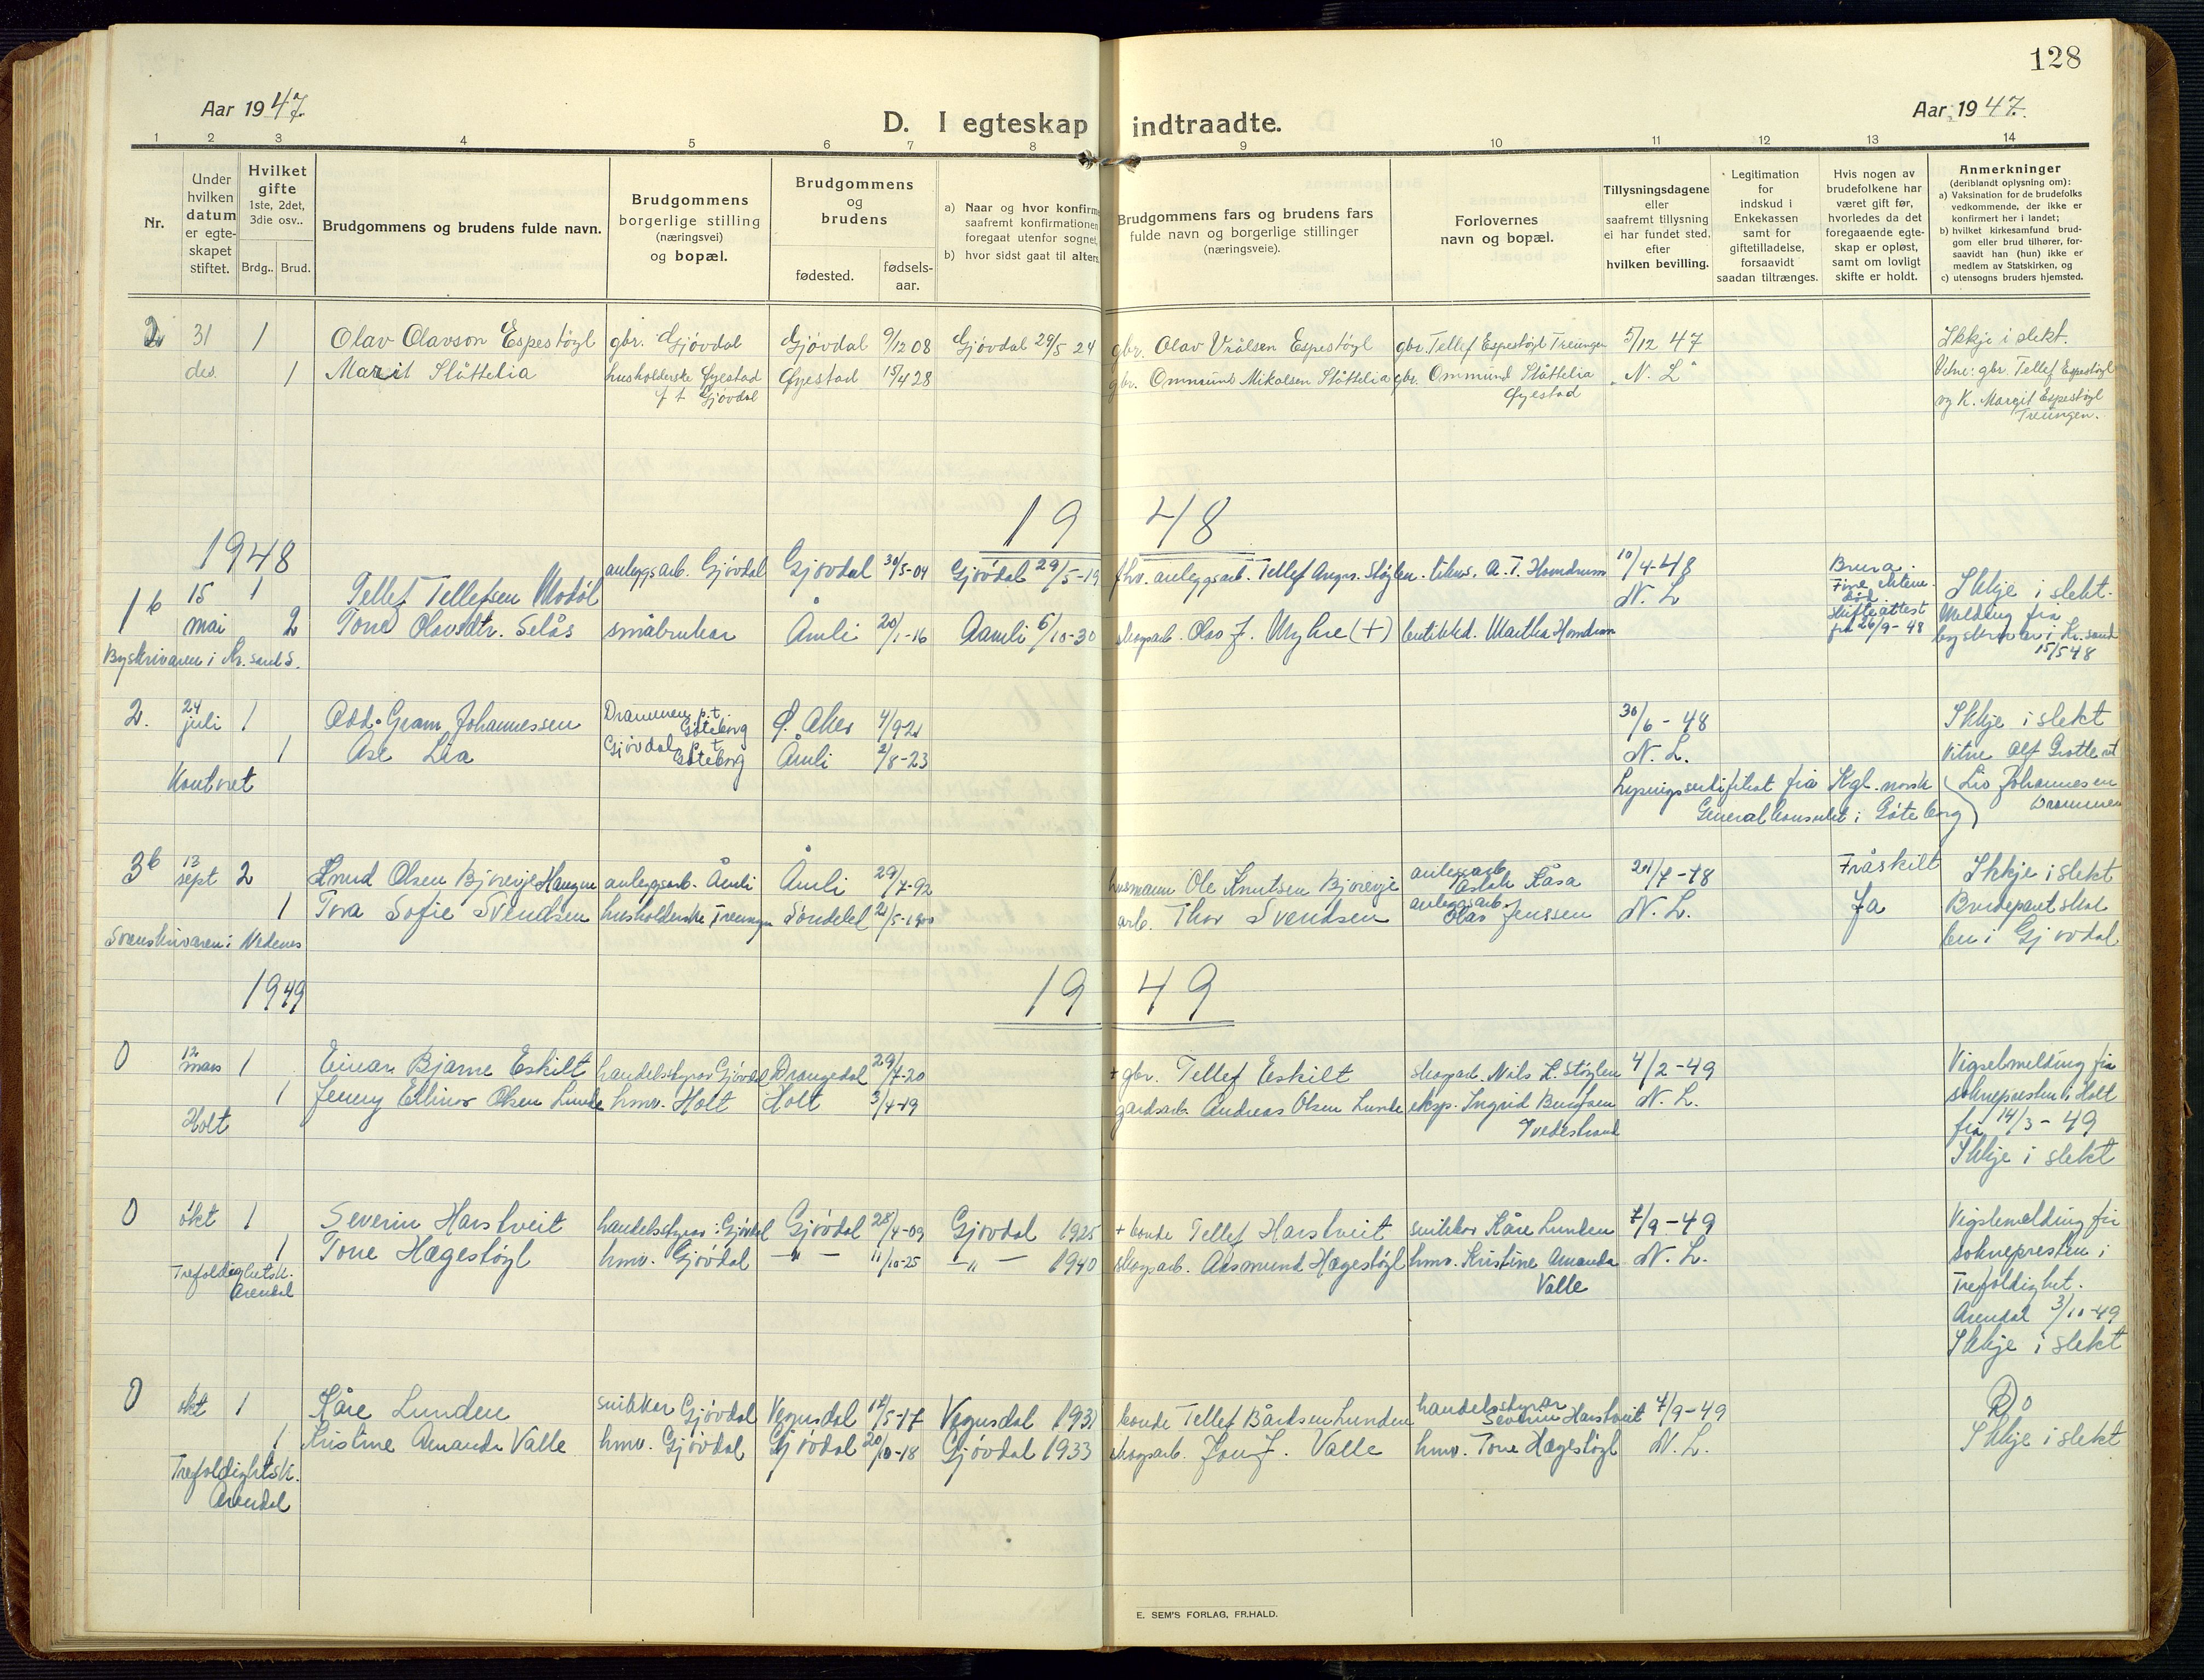 128
Aar 1947.
Aar 1947.
D. I egteskap indtraadte.
1 2 3 4 5 6 7 8 9 10 11 12 13 14
Nr.
Under hvilken datum er egte- skapet stiftet.
Hvilket gifte 1ste, 2det, 3die osv..
Brdg.. Brud.
Brudgommens og brudens fulde navn.
Brudgommens borgerlige stilling (næringsvei) og bopæl.
Brudgommens og brudens
fødested. fødsels- aar.
a) Naar og hvor konfirm
saafremt konfirmationen
foregaat utenfor sognet,
b) hvor sidst gaat til alters.
Brudgommens fars og brudens fars
fulde navn og borgerlige stillinger
(næringsveie).
Forlovernes
navn og bopæl.
Tillysningsdagene
eller
saafremt tillysning
ei har fundet sted,
efter
hvilken bevilling.
Legitimation
for
indskud i
Enkekassen
samt for
giftetilladelse,
forsaavidt
saadan tiltrænges.
Hvis nogen av
brudefolkene har
været gift før,
hvorledes da det
foregaaende egte-
skap er opløst,
samt om lovligt
skifte er holdt.
Anmerkninger
(deriblandt oplysning om):
a) Vaksination for de brudefolks
vedkommende, der ikke er
konfirmert her i landet;
b) hvilket kirkesamfund brud-
gom eller brud tilhører, for-
saavidt han (hun) ikke er
medlem av Statskirken, og
c) utensogns bruders hjemsted.
2 31 1 Olav Olavson Espestøyl gbr. Gjøvdal Gjøvdal 9/12 08 Gjøvdal 29/5 24 gbr. Olav Vrålsen Espestøyl gbr. Tellef Espestøyl Treungen 5/12 47 Ikkje i slekt.
des. 1 Marit Slåttelia husholderske Øyestad Øyestad 15/4 28 gbr. Ommund Mikalsen Slåttelia gbr. Ommund Slåttelia "N. L" Vitne: gbr. Tellef Espestøyl
f t Gjøvdal Øyestad og K. Margit Espestøyl
Treungen.
19 48
1948
1b 15 1 Tellef Tellefsen Modøl anleggsarb. Gjøvdal Gjøvdal 30/5-04 Gjøvdal 29/5-19 fhv. anleggsarb. Tellef Støylen A. T. Homdrum 10/4-48 Brura. Ikkje i slekt.
mai 2 Tone Olavsdtr. Selås småbruker Åmli 20/1-16 Aamli 6/10-30 skogsarb. Olav J. Myhre (+) Martha Homdrum N. L død. Melding frå
Byskrivaren i Kr.sand S. skifteattest frå 26/9-48 byskrivar i Kr.sand
15/5 48
2. 24 juli 1 Odd Gram Johannessen Drammen p.t. Göteborg Ø. Aker 4/9-21 30/6-48 Ikkje i slekt
1 Åse Lia Gjøvdal p.t. Göteborg Åmli 2/8-23 N. L. Vitne Alf Grotte
Kontoret Lysingssertifikat frå Kgl. norsk Liv Johannesen
Generalkonsulat i Göteborg) Drammen
3b 13 sept 2 Knud Olsen Bjorvje Haugen anleggsarb. Åmli Åmli 29/7-92 husmann Ole Knutsen Bjorvje anleggsarb. Aslak Kåsa 21/7-48 Fråskilt Ikkje i slekt
1 Tora Sofie Svendsen husholderske Treungen Søndeled 21/5-1900 arb. Thor Svendsen anleggsarb. Olav Jenssen N. L. Ja Brudeparet skal
Sorenskrivaren i Nedenes bu i Gjøvdal
1949
19 49
0 12 mars 1 Einar Bjarne Eskilt handelsstyrar Gjøvdal Drangedal 29/7-20 + gbr. Tellef Eskilt skogsarb. Nils K. Støylen 4/2-49 Vigselsmelding frå
1 Jenny Ellinor Olsen Lunde hmv. Holt Holt 3/4-19 gardsarb. Andreas Olsen Lunde eksp. Ingrid N. L. soknepresten i Holt
Holt Tvedestrand frå 14/3-49
Ikkje i slekt
0 okt 1 Severin Harstveit handelsstyrar i Gjøvdal Gjøvdal 28/4-09 Gjøvdal 1925 + bonde Tellef Harstveit snikkar Kåre Lunden 7/9-49 Vigslemelding frå
1 Tone Hægestøyl hmv. Gjøvdal —"— 11/10-25 —"— 1940 skogsarb. Aasmund Hægestøyl hmv. Kristine Amanda N. L. soknepresten i
Trefoldighetsk. Valle Trefoldighet.
Arendal Arendal 3/10-49
Ikkje i slekt
0 okt 1 Kåre Lunden snikkar Gjøvdal Vegusdal 14/5-17 Vegusdal 1931 bonde Tellef Bårdsen Lunden handelsstyrar Severin Harstveit 7/9-49 Do
1 Kristine Amanda Valle hmv. Gjøvdal Gjøvdal 20/10-18 Gjøvdal 1933 skogsarb. Jon J. Valle hmv. Tone Hægestøyl N. L. Ikkje i slekt
Trefoldighetsk.
Arendal
E. SEM'S FORLAG, FR.HALD.